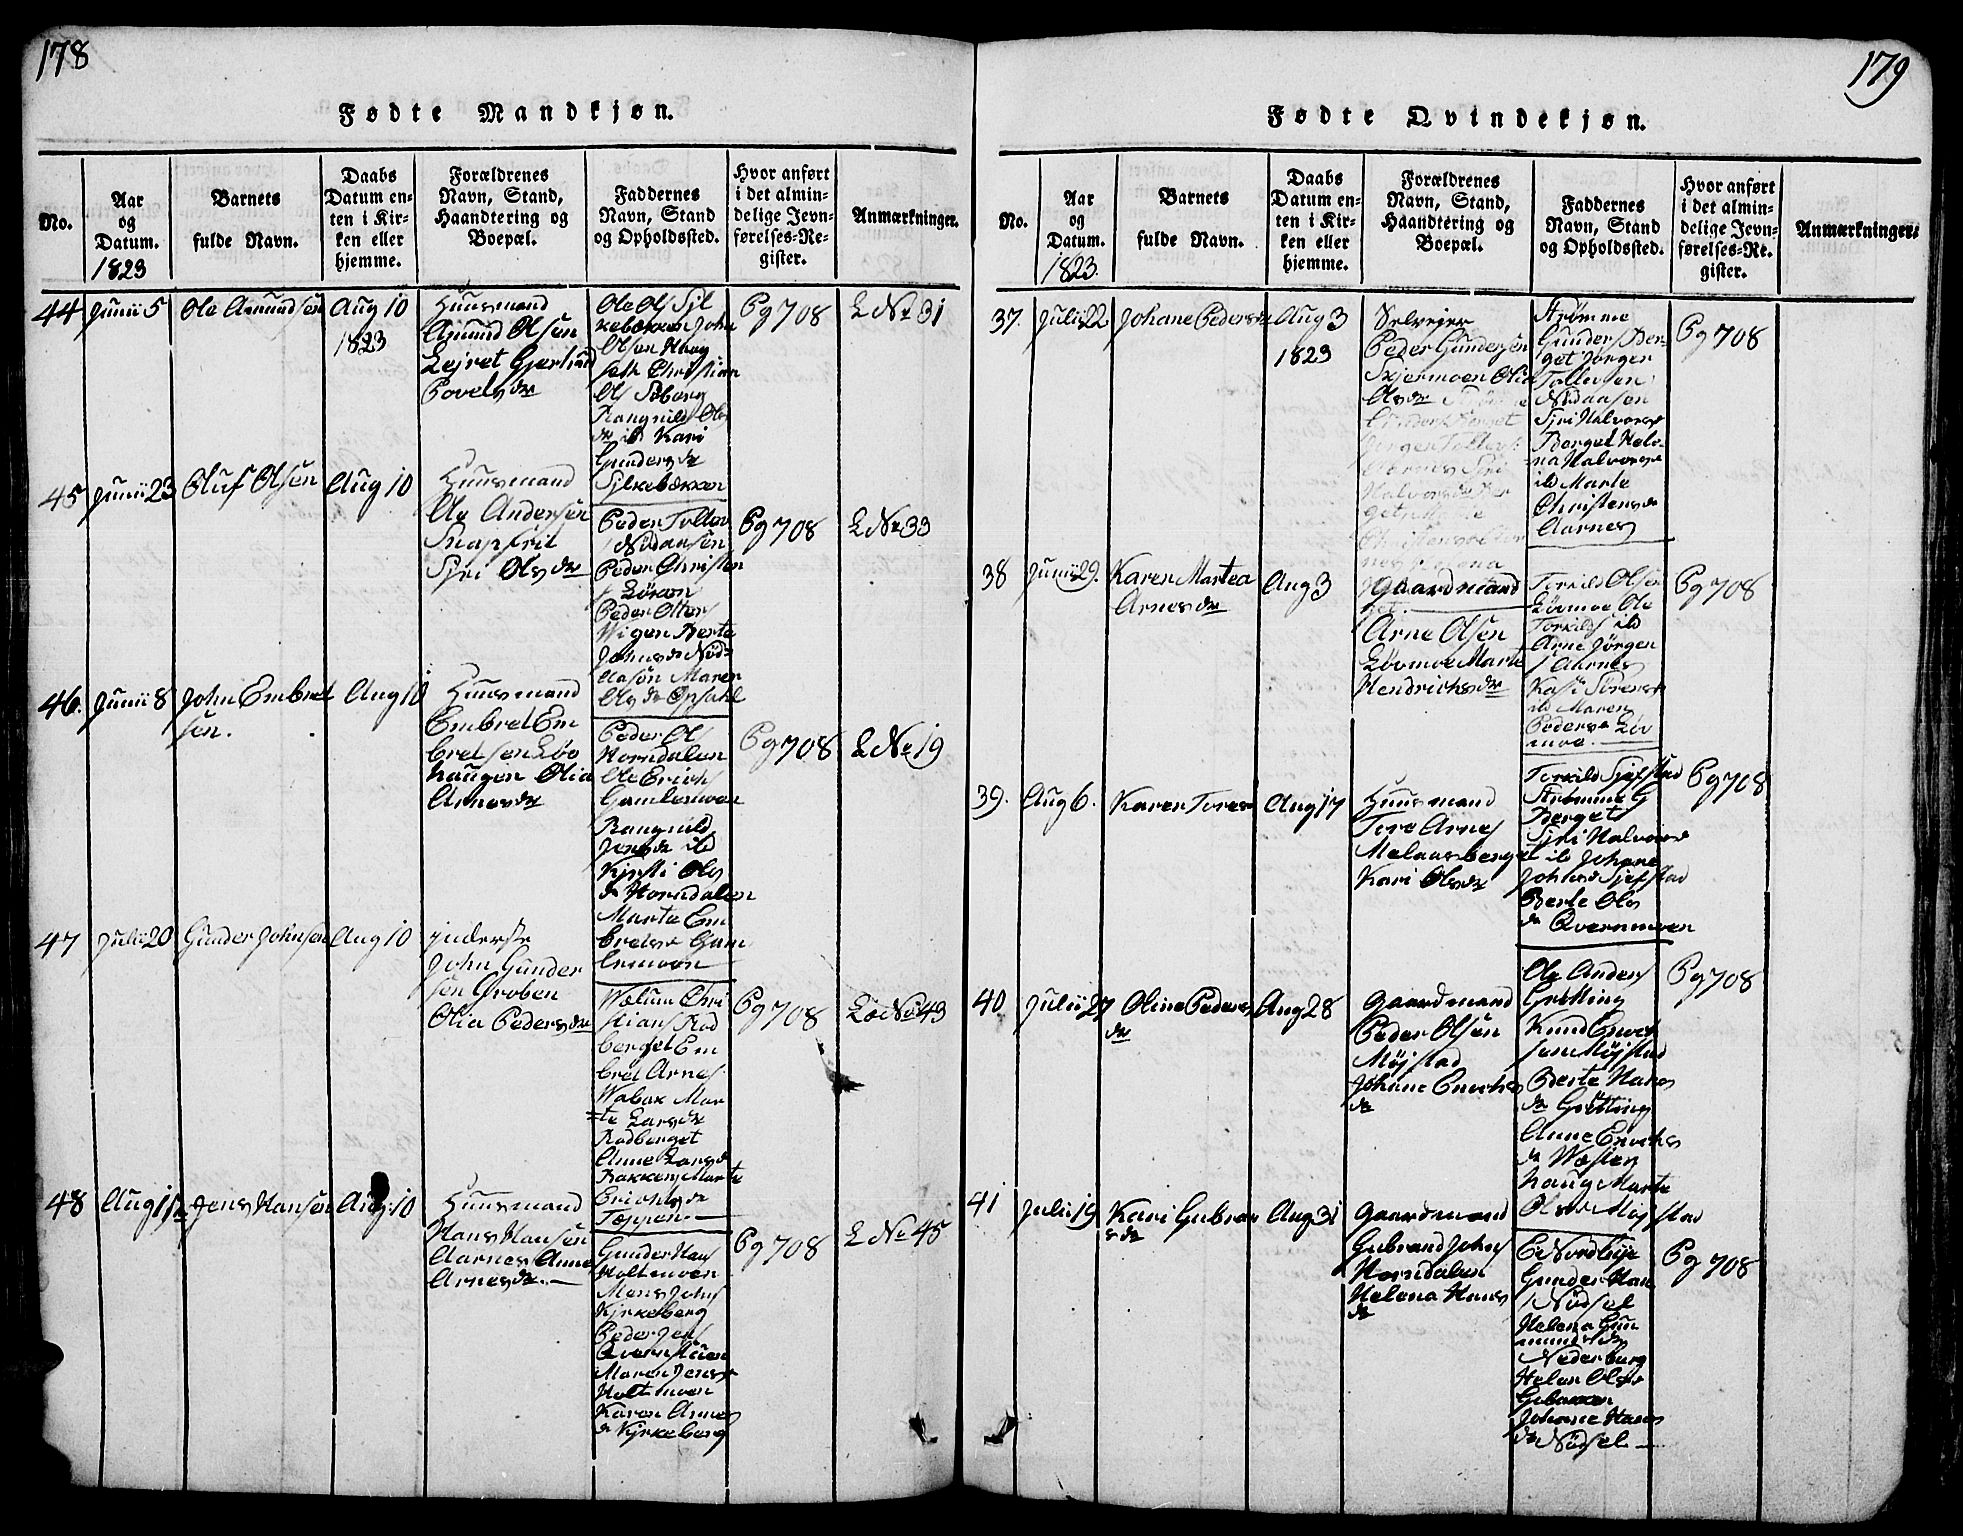 178
Fødte Mandkjøn.
No.
Aar
og
Datum.
1823
Barnets
fulde Navn.
Daabs
Datum en-
ten i Kir-
ken eller
hjemme.
Forældrenes
Navn, Stand,
Haandtering og
Boepæl.
Faddernes
Navn, Stand
og Opholdssted.
Hvor anført
i det almin-
delige Jevn-
førelses-Re-
gister.
Anmærkninger.
44
Junii 5
Ole Amundsen
Aug 10
1823
Huusmand
Amund Olsen
Lejret Gjertrud
Povelsdr
Ole Ols Sjl
kebækken John
Olsen Haag
seth Christian
Ols Söberg
Rangnild Ols
dr ib Kari
Gundersdr
Sjlkebækken
Pg 708
L No 31
45
Junii 23
Oluf Olsen
Aug 10
Huusmand
Ole Andersen
Snapfrit
Sjri Olsdr
Peder Tollev
Nödaasen
Peder Christen
Lökon
Peder Otters
Wigen Berte
Johnsdr Nöd-
aasön Maren
Olsdr Opsahl
Pg 708
L No 33
46.
Junii 8
John Embret
sen.
Aug 10
Huusmand
Embret Em
bretsen Löv
haugen Olia
Arnesdr
Peder Ols
Horndalen
Ole Erichs
Gamlemoen
Rangnild
Jensdr ib
Kjrsti Ols
dr Horndalen
Marte Em
bretsdr Gam
lemoen
Pg 708
L No 19
47
Julii 20
Gunder Johnsen
Aug 10
Jnderste
John Gunder
sen Groben
Olia Pedersdr
Wælum Chri
stians Rod
berget Em
bret Arnes
Wabak Mar
te Larsdr
Rodberget
Anne Larsd
Bakken Marte
Erichsdr
Toppen
Pg 708
L No 43
48
Aug 1
Jens Hansen
Aug. 10
Huusmand
Hans Hansen
Aarnes Anne
Arnesdr.
Gunder Hans
Holtmoen
Mons Johs
Kjrkeberg
Peder Jens
Qvernstuen
Maren Jensdr
Holtmoen
Karen Arnes
dr Kjrkeberg
Pg 708
L No 45
179
Fødte Qvindekjøn.
No.
Aar
og
Datum.
1823.
Barnets
fulde Navn.
Daabs
Datum en-
ten i Kir-
ken eller
hjemme.
Forældrenes
Navn, Stand,
Haandtering og
Boepæl.
Faddernes
Navn, Stand
og Opholdssted.
Hvor anført
i det almin-
delige Jevn-
førelses-Re-
gister.
Anmærkninger.
37.
Julii 22
Johane Pedersdr
Aug 3
1823
Selvejer
Peder Gundersen
Skjermoen Olia
Olsdr
Strömme
Gunders Ber-
get Jörgen
Tollevsen
Nödaasen
Sjri Halvorsdr
Berget Hele-
na Halvorsdr
ib Marte
Christensdr
Aarnes
Pg 708
38
Junii 29.
Karen Martea
Arnesdr
Aug 3
Gaardmand
Arne Olsen
Lövmoe Marte
Hendrichsdr
Torkild Olsen
Lövmoe Ole
Torkilds ib
Arne Jörgen
s Aarnes
Kari Sörensdr
ib Maren
Pedersdr Löv
moe.
Pg 708
39.
Aug 6.
Karen Tores
Aug 17
Huusmand
Tore Arnes
Melaasberget
Kari Olsdr
Torkild Sjefstad
Strömme G
Berget
Sjri Halvorsdr
ib Johane
Johnsd Sjefstad
Berte Ols
dr Qvernmoen
Pg 708
40
Julii 27
Oline Peders
dr
Aug 28
Gaardmand
Peder Olsen
Möjstad
Johane Enochs
dr
Ole Anders
Grötting
Knud Enoch
sen Möjstad
Berte Hans
dr Grötting
Anne Enochs
dr Wæsten
haug Marte
Olsdr Möjstad
Pg 708
41
Julii 19
Kari Gubran
sdr
Aug 31
Gaardmand
Gubrand Johs
Horndalen
Helena Hans
dr
E Nordbye
Gunder Han
s Nödsel
Helena Gun
mundsdr
Nederberg
Helen Olsdr
Gubakken
Johane Hans
dr Nödsel
Pg 708